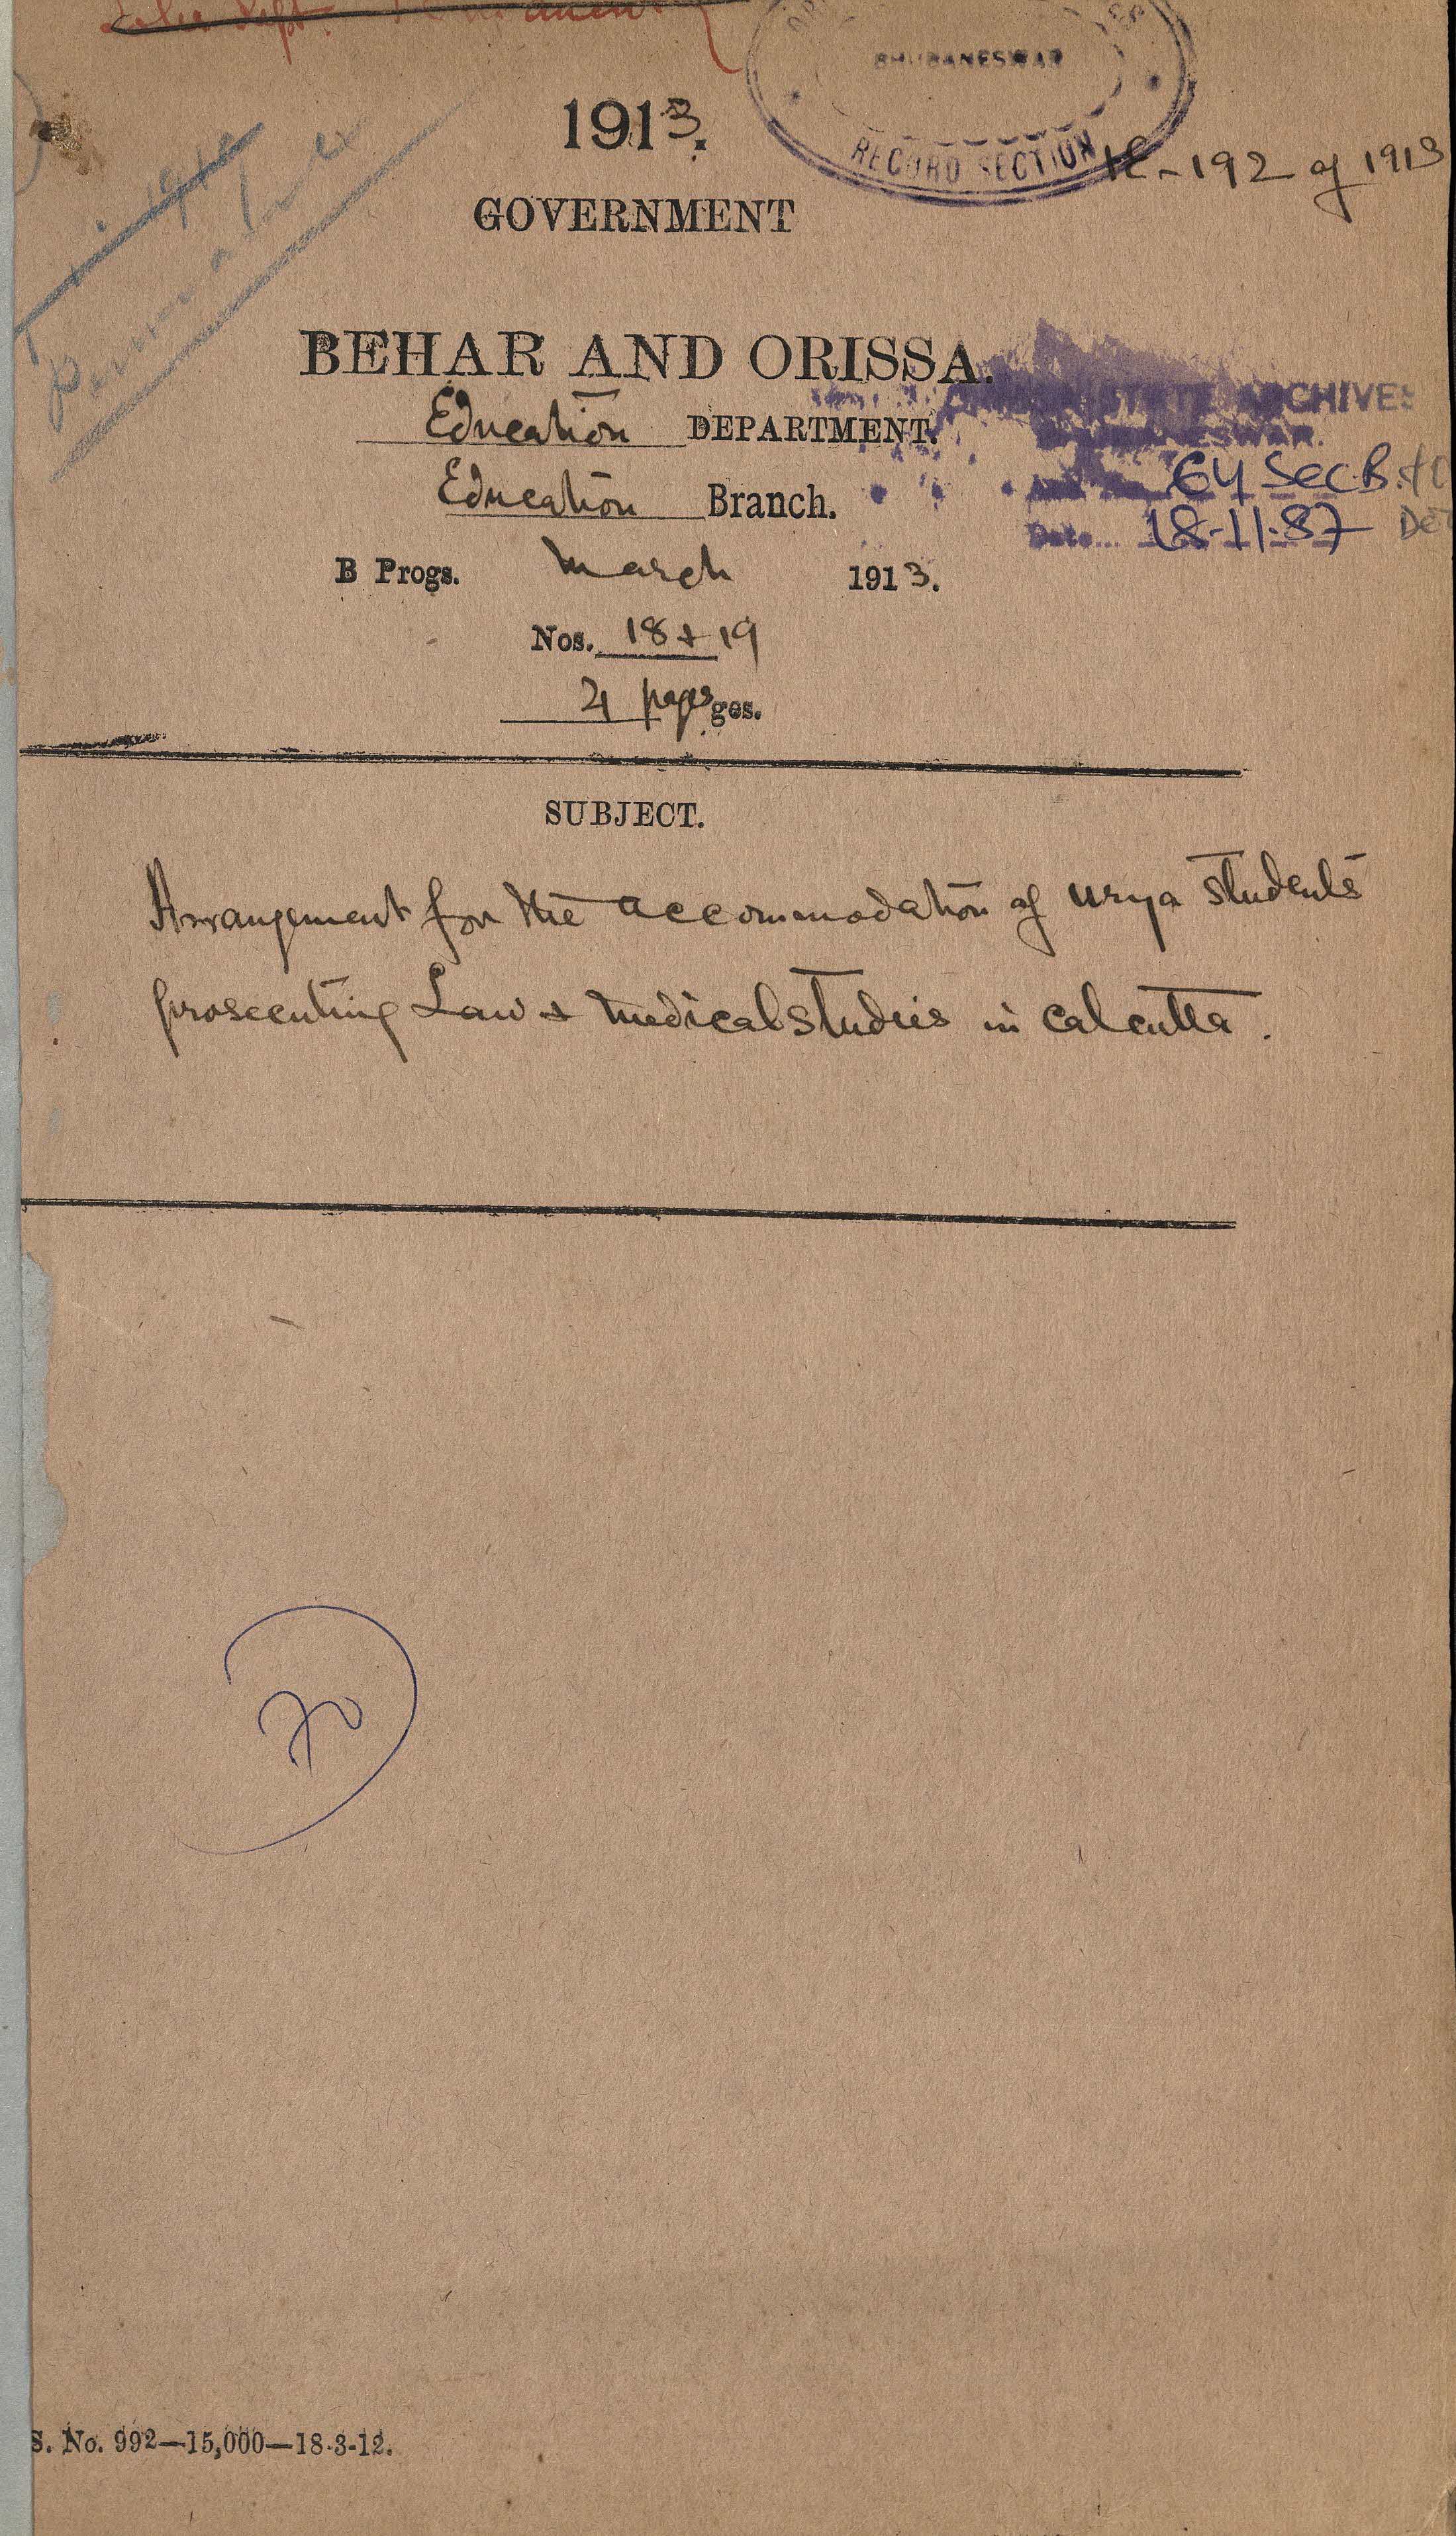 BHUBANESWAR
RECORD SECTION
1913.
-192 of 1913
GOVERNMENT
BEHAR AND ORISSA.
STATE ARCHIVES
Education DEPARTMENT.
BHUBANESWAR.
64 Sec. B.
Education Branch.
Date... 18-11-87
B Progs. March 1913.
Nos. 18 & 19
pages ges.
SUBJECT.
Arrangement for the accommodation of urya students
prosecuting Law & medical studies in calcutta.
S. No. 992—15,000—18-3-12.